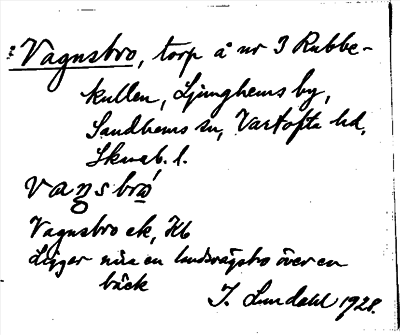 : Vagnsbro, torp å nr 3 Rubbe-
kullen, Ljunghems by,
Sandhems sn, Vartofta hd,
Skarab. l.
vaŋsbrō
Vagnsbro ek, Kb
Ligger nära en landsvägsbro över en
bäck
J. Lundahl 1928.